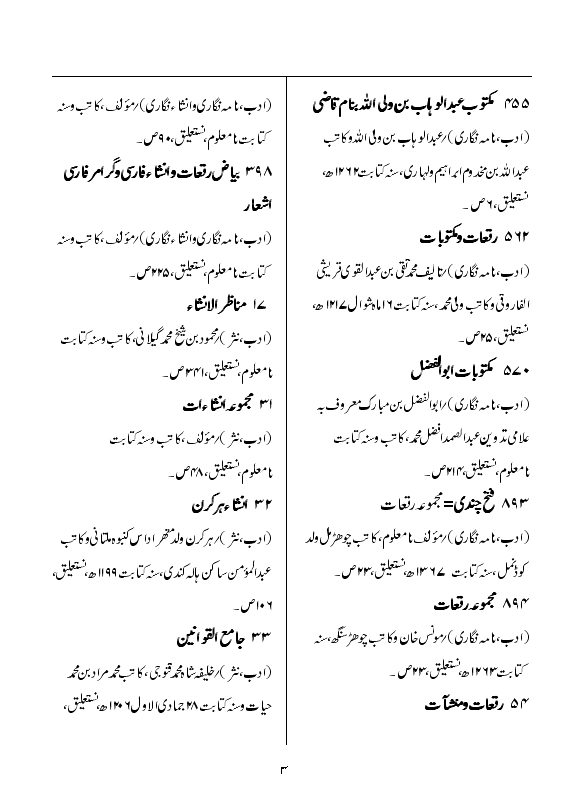 ۴۵۵ مکتوب عبدالوہاب بن ولی اللہ بنام قاضی
(ادب، نامہ نگاری)/عبدالوہاب بن ولی اللہ و کاتب
عبداللہ بن مخدوم ابراہیم ولہاری، سنہ کتابت ۱۲۶۲ھ،
نستعلیق، ۶ص۔
۵۶۲ رقعات ومکتوبات
(ادب، نامہ نگاری)/تالیف محمد تقی بن عبدالقوی قریشی
الفاروقی و کاتب ولی محمد، سنہ کتابت ۱۶ ماہ شوال ۱۲۱۷ھ،
نستعلیق، ۲۵ص۔
۵۷۰ مکتوبات ابوالفضل
(ادب، نامہ نگاری)/ابوالفضل بن مبارک معروف بہ
علامی تدوین عبدالصمد افضل محمد، کاتب وسنہ کتابت
نامعلوم، نستعلیق، ۲۱۴ص۔
۸۹۳ فتح چندی = مجموعہ رقعات
(ادب، نامہ نگاری)/مؤلف نامعلوم، کاتب چوھڑمل ولد
کوڈنمل، سنہ کتابت ۱۳۶۷ھ، نستعلیق، ۲۳ص۔
۸۹۴ مجموعہ رقعات
(ادب، نامہ نگاری)/مونس خان و کاتب چوھڑ سنگھ، سنہ
کتابت ۱۲۶۲ھ، نستعلیق، ۲۳ص۔
۵۴ رقعات ومنشآت
(ادب، نامہ نگاری وانشاء نگاری)/مؤلف، کاتب وسنہ
کتابت نامعلوم، نستعلیق، ۹۰ص۔
۳۹۸ بیاض رقعات وانشاء فارسی وگرامر فارسی
اشعار
(ادب، نامہ نگاری وانشاء نگاری)/مؤلف، کاتب وسنہ
کتابت نامعلوم، نستعلیق، ۲۲۵ص۔
۱۷ مناظر الانشاء
(ادب، نثر)/محمود بن شیخ محمد گیلانی، کاتب وسنہ کتابت
نامعلوم، نستعلیق، ۳۴۱ص۔
۳۱ مجموعہ انشاءات
(ادب، نثر)/مؤلف، کاتب وسنہ کتابت
نامعلوم، نستعلیق، ۴۸ص۔
۳۲ انشاء ہرکرن
(ادب، نثر)/ہرکرن ولد متھرا داس کنبوہ ملتانی و کاتب
عبدالمؤمن ساکن ہالہ کندی، سنہ کتابت ۱۱۹۹ھ، نستعلیق،
۱۰۶ص۔
۳۳ جامع القوانین
(ادب، نثر)/خلیفہ شاہ محمد قنوجی، کاتب محمد مراد بن محمد
حیات وسنہ کتابت ۲۸ جمادی الاول ۱۲۰۶ھ، نستعلیق،
۳